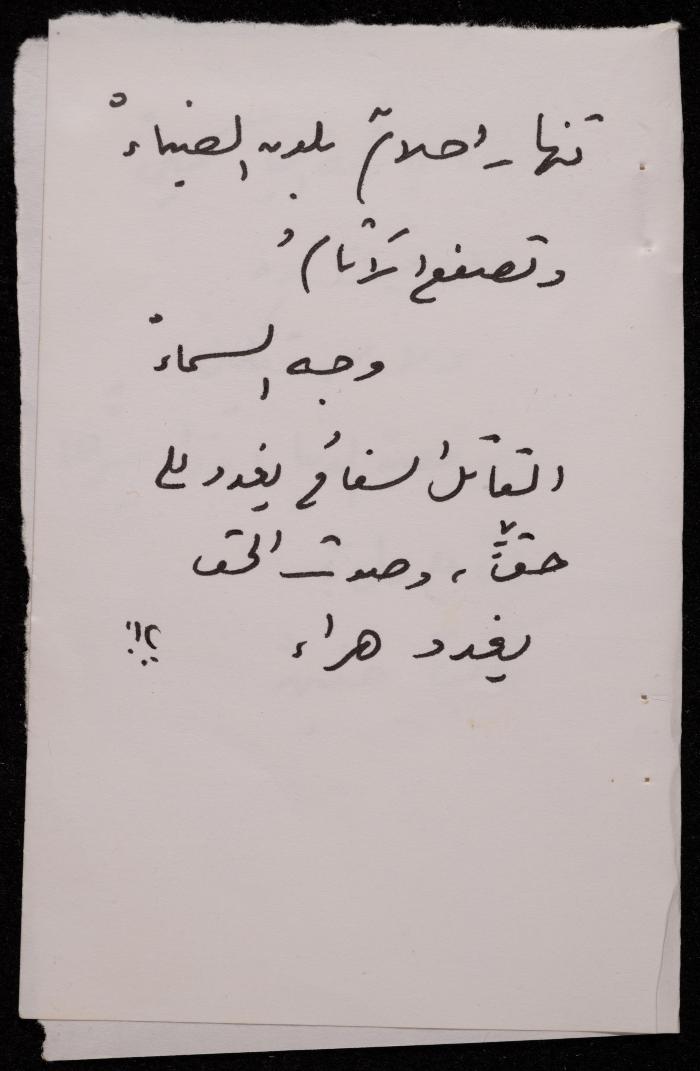 تنهار أحلامٌ بلون الضياءْ
وتصفع الآثامُ
وجه السماءْ
القاتل السفاحُ يغدو له
حقٌّ ، وصوت الحق
يغدو هراء ؟!!